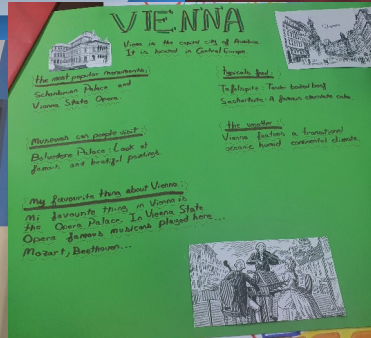 VIENNA
Vienna is the capital city of Austria.
It is located in Central Europe.
The most popular monuments:
Schönbrunn Palace and
Vienna State Opera.
Typicals food:
Tafelspitz: Tender boiled beef
Sachertorte: A famous chocolate cake
Museums can people visit:
Belvedere Palace: Look at
famous and beatiful paintings.
the weather
Vienna features a transitional
oceanic humid continental climate.
My favourite thing about Vienna:
Mi favourite thing in Vienna is
the Opera Palace. In Vienna State
Opera famous musicians played here...
Mozart, Beethoven...